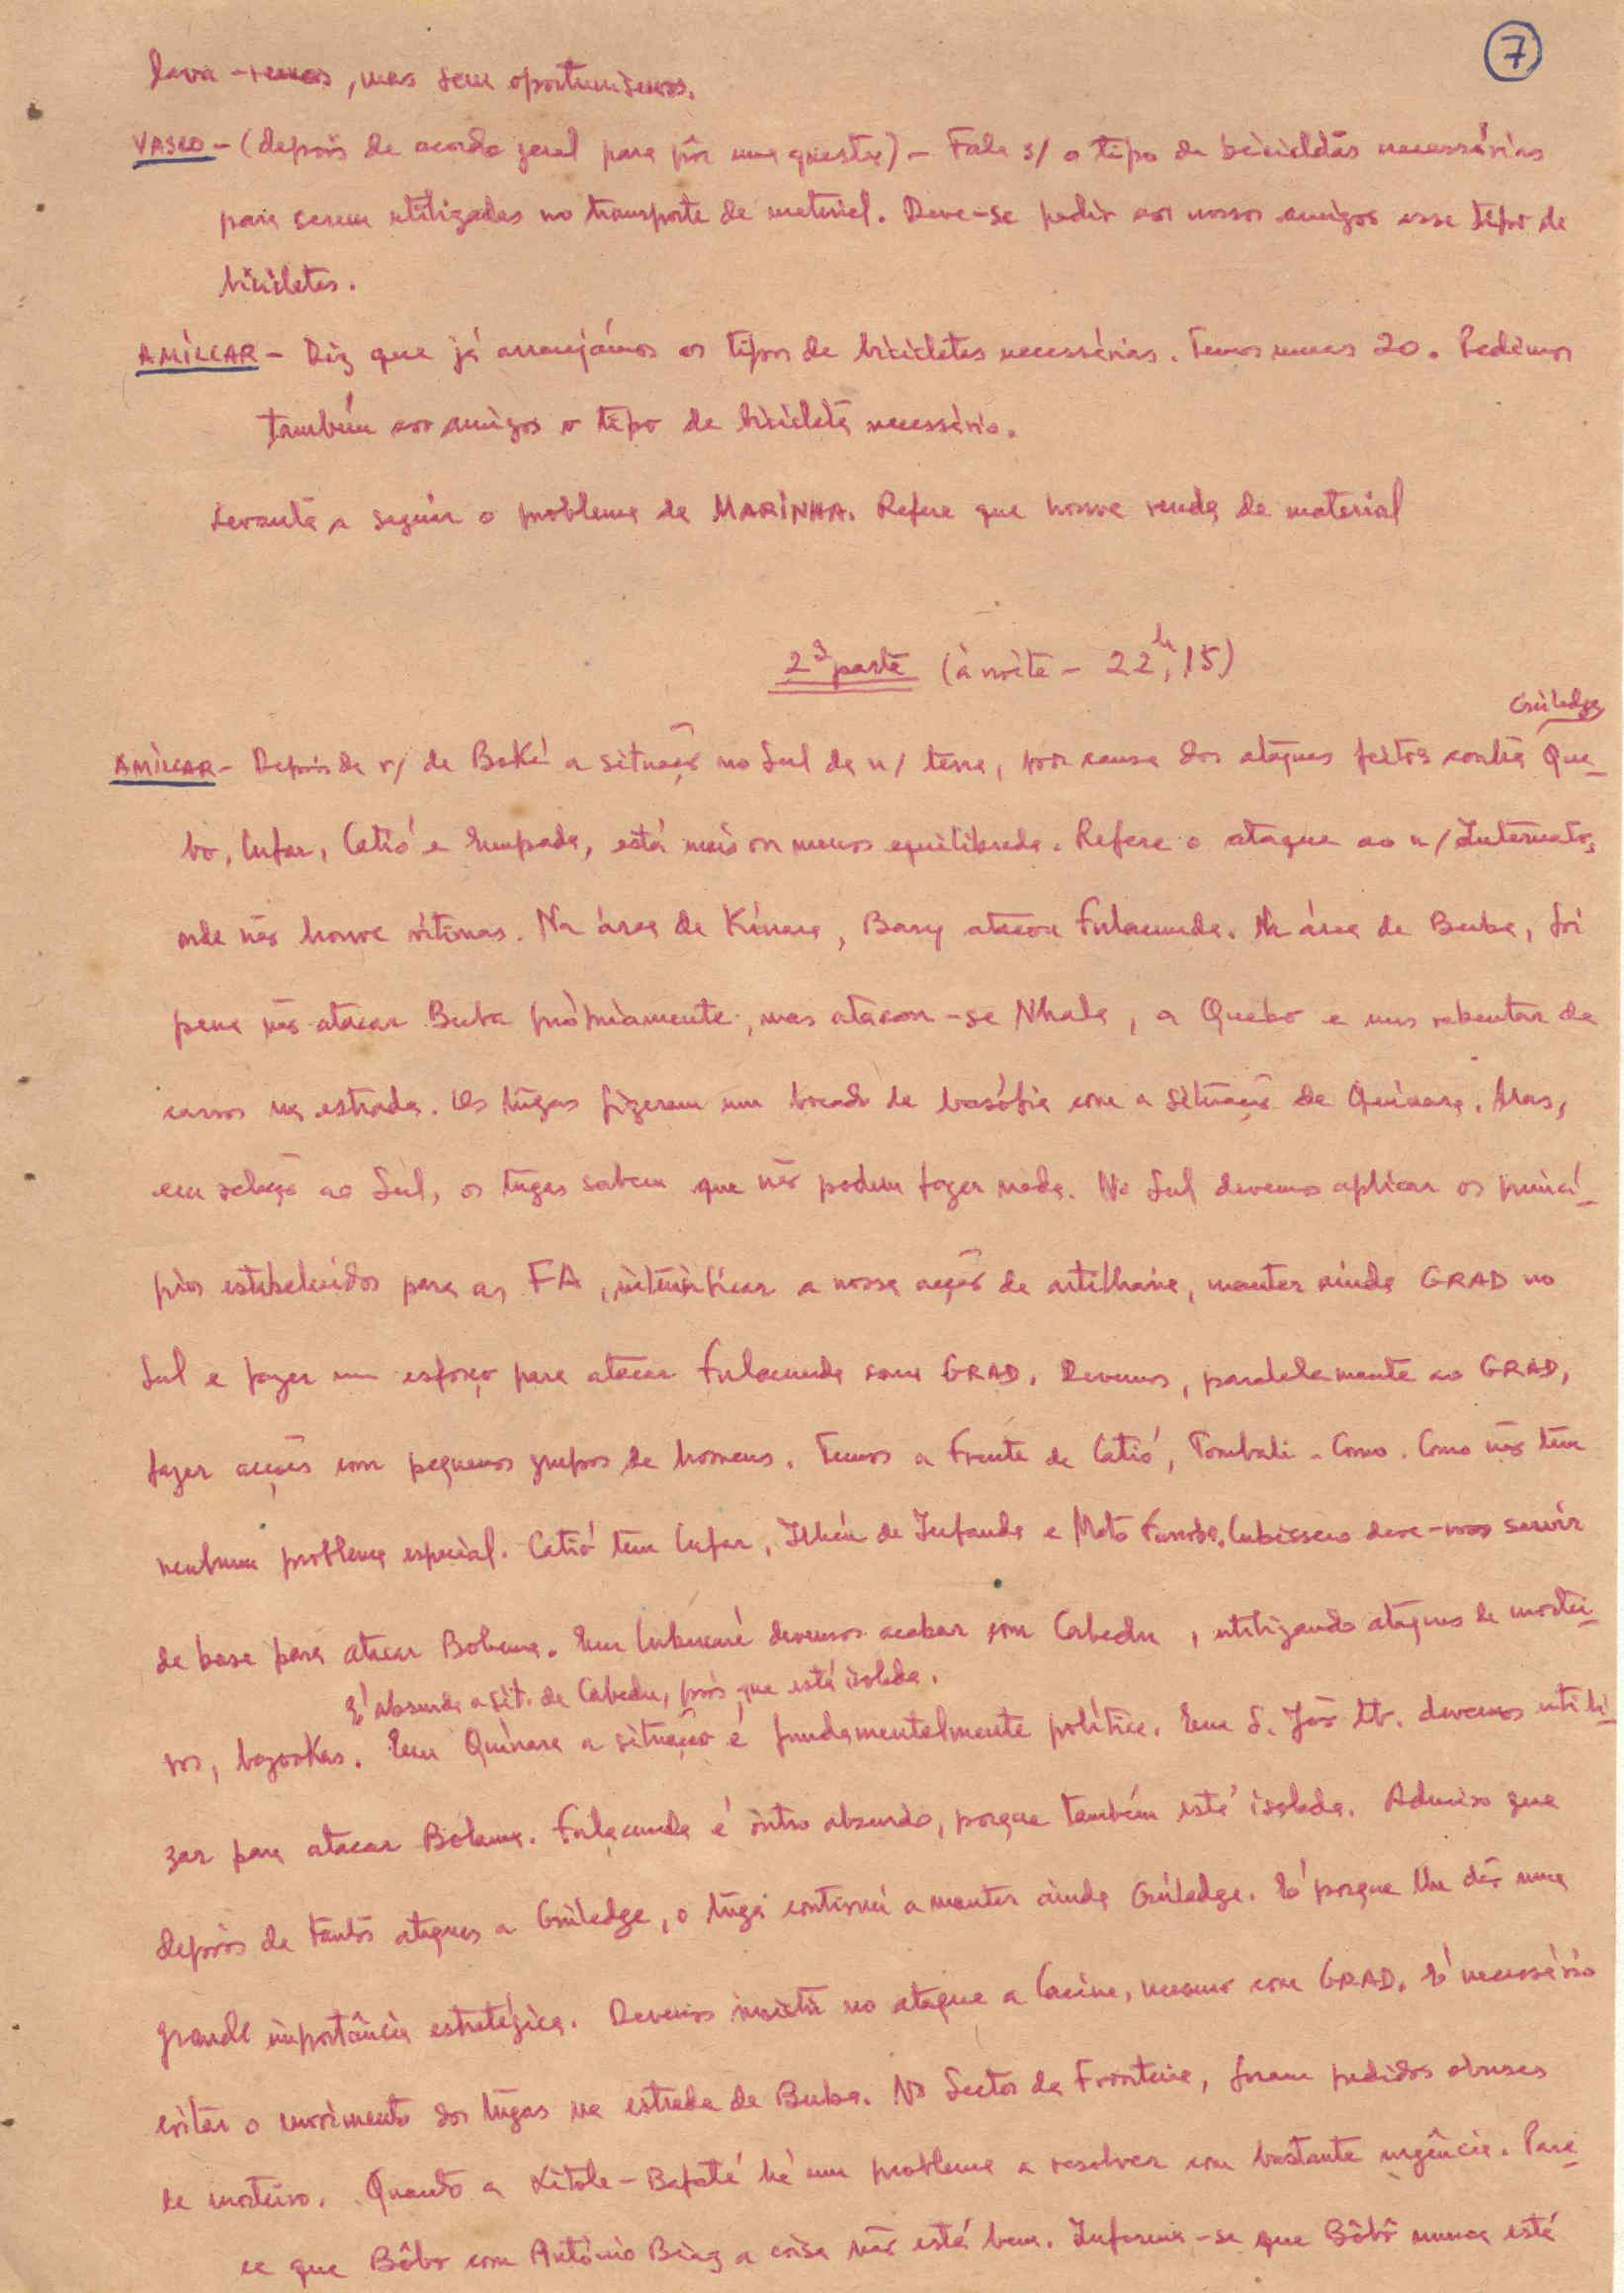 7
lava-remos, mas sem oportunismos.
VASCO - (depois de acordo geral para pôr uma questão) - Fala s/ o tipo de bicicletas necessárias
para serem utilizadas no transporte de material. Deve-se pedir aos nossos amigos esse tipo de
bicicletas.
AMÍLCAR - Diz que já arranjámos os tipos de bicicletas necessárias. Temos umas 20. Pedimos
também aos amigos o tipo de bicicleta necessário.
Levanta a seguir o problema da MARINHA. Refere que houve venda de material
2ª parte (à noite - 22h,15)
Guiledge
AMÍLCAR - Depois da v/ de Boké a situação no Sul da n/ terra, por causa dos ataques feitos contra Que-
bo, Cufar, Catió e Empada, está mais ou menos equilibrada. Refere o ataque ao n/ Internato,
onde não houve vítimas. Na área de Kínara, Bary atacou Fulacunda. Na área de Buba, foi
pena não atacar Buba pròpriamente, mas atacou-se Nhala, a Quebo e uns rebentar de
carros na estrada. Os tugas fizeram um bocado de basófia com a situação de Quínara. Mas,
em relação ao Sul, os tugas sabem que não podem fazer nada. No Sul devemos aplicar os princí-
pios estabelecidos para as FA, intensificar a nossa acção de artilharia, manter ainda GRAD no
Sul e fazer um esforço para atacar Fulacunda com GRAD. Devemos, paralelamente ao GRAD,
fazer acções com pequenos grupos de homens. Temos a Frente de Catió, Tombali - Como. Como não tem
nenhum problema especial. Catió tem Cufar, Ilhéu de Infanda e Mato Farroba. Cubisseco deve-nos servir
de base para atacar Bolama. Em Cubucaré devemos acabar com Cabedu, utilizando ataques de mortei-
É absurda a sit. de Cabedu, pois que está isolada.
ros, bazookas. Em Quínara a situação é fundamentalmente política. Em S. João etc. devemos utili-
zar para atacar Bolama. Fulacunda é outro absurdo, porque também está isolada. Admiro que
depois de tantos ataques a Guiledge, o tuga continui a manter ainda Guiledge. É porque lhe dão uma
grande importância estratégica. Devemos insistir no ataque a Cacine, mesmo com GRAD. É necessário
evitar o movimento dos tugas na estrada de Buba. No Sector da Fronteira, foram pedidos obuses
de morteiro. Quanto a Xitole - Bafatá há um problema a resolver com bastante urgência. Pare-
ce que Bôbo com António Biag a coisa não está bem. Informa-se que Bôbô nunca está